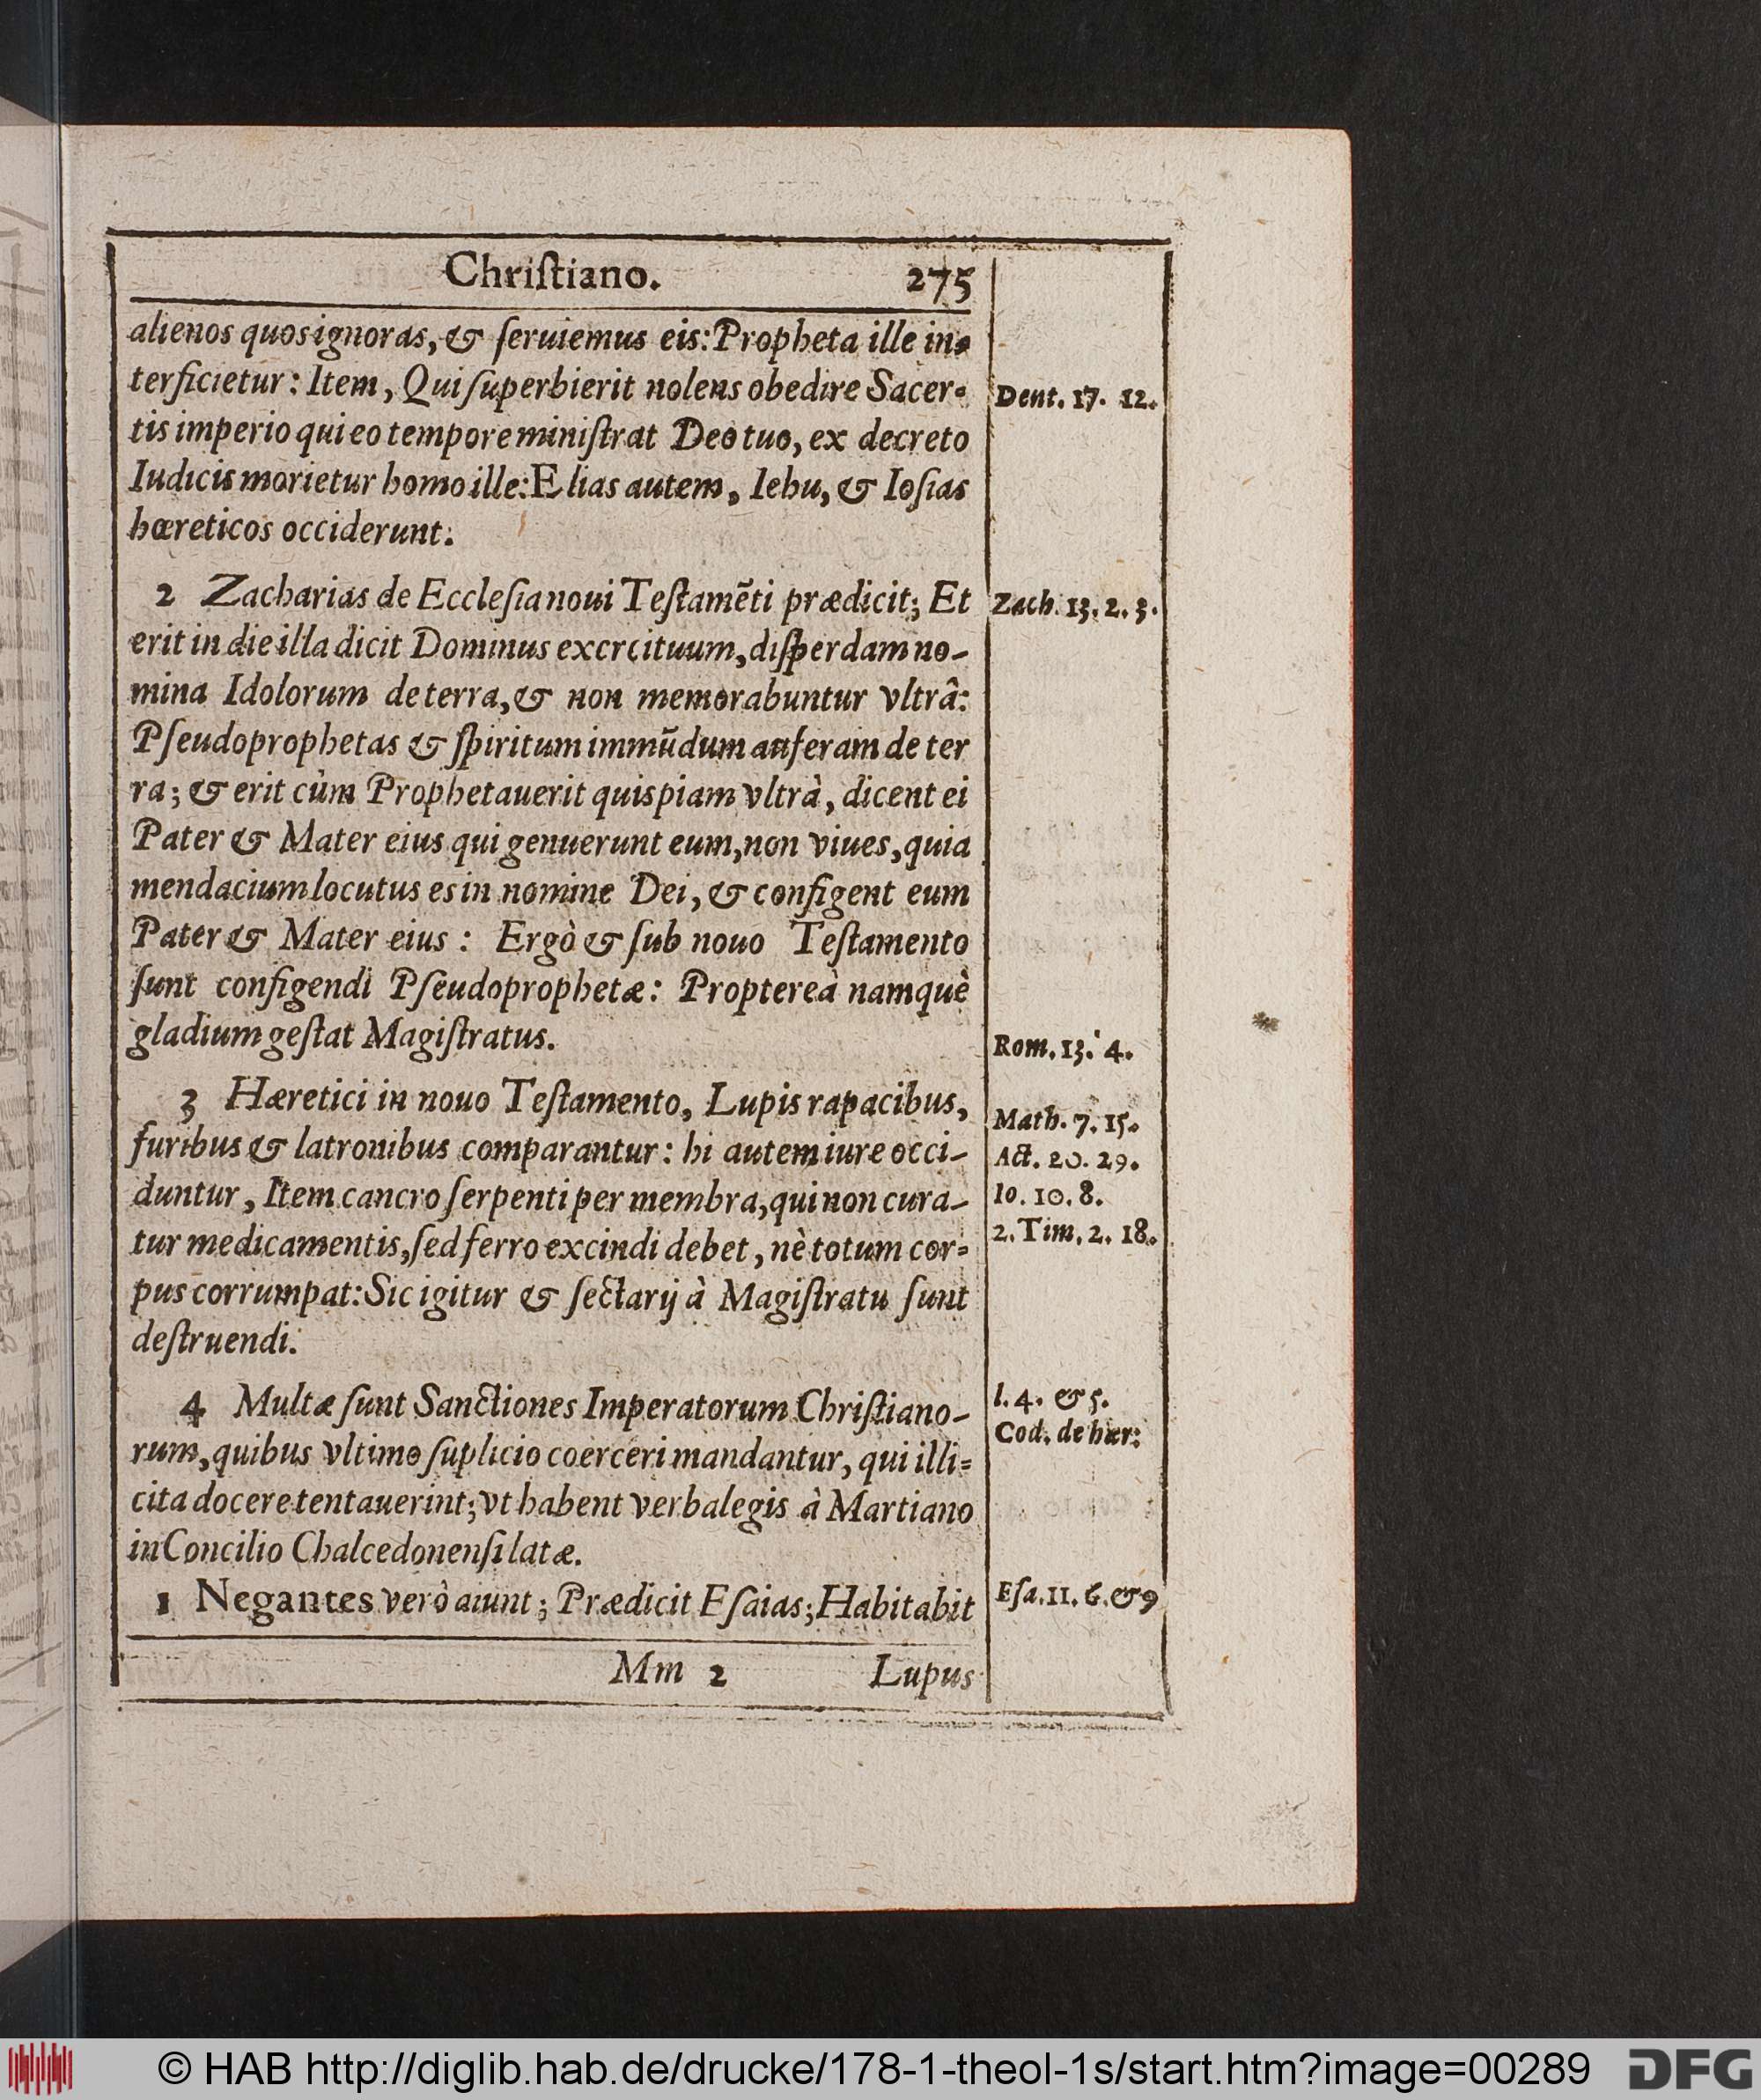 Chriſtiano. 275
alienos quos ignoras, & ſeruiemus eis: Propheta ille in-
terficietur: Item, Qui ſuperbierit nolens obedire Sacer-
tis imperio qui eo tempore miniſtrat Deo tuo, ex decreto
Iudicis morietur homo ille: Elias autem, Iehu, & Ioſias
hæreticos occiderunt.
Deut. 17. 12.
2 Zacharias de Eccleſia noui Teſtamẽti prædicit; Et
erit in die illa dicit Dominus excrcituum, diſperdam no-
mina Idolorum de terra, & non memorabuntur vltrâ:
Pſeudoprophetas & ſpiritum immũdum auferam de ter
ra; & erit cùm Prophetauerit quispiam vltrà, dicent ei
Pater & Mater eius qui genuerunt eum, non viues, quia
mendacium locutus es in nomine Dei, & configent eum
Pater & Mater eius: Ergò & ſub nouo Teſtamento
ſunt configendi Pſeudoprophetæ: Proptereà namquè
gladium geſtat Magiſtratus.
Zach. 13. 2. 3.
Rom. 13. 4.
3 Hæretici in nouo Teſtamento, Lupis rapacibus,
furibus & latronibus comparantur: hi autem iure occi-
duntur, Item cancro ſerpenti per membra, qui non cura-
tur medicamentis, ſed ferro excindi debet, nè totum cor-
pus corrumpat: Sic igitur & ſectarij à Magiſtratu ſunt
deſtruendi.
Math. 7. 15.
Act. 20. 29.
Io. 10. 8.
2. Tim. 2. 18.
4 Multæ ſunt Sanctiones Imperatorum Chriſtiano-
rum, quibus vltimo ſuplicio coerceri mandantur, qui illi-
cita docere tentauerint; vt habent verba legis à Martiano
in Concilio Chalcedonenſi latæ.
l. 4. & 5.
Cod. de hær:
1 Negantes verò aiunt; Prædicit Eſaias; Habitabit
Eſa. 11. 6. & 9
Mm 2 Lupus
© HAB http://diglib.hab.de/drucke/178-1-theol-1s/start.htm?image=00289 DFG